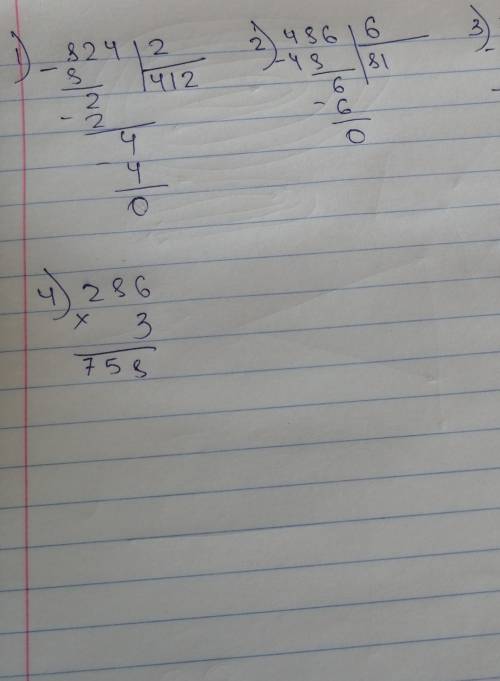 1) - 824 | 2
8 | 412
2
- 2
4
- 4
0
2) 486 | 6
- 48 | 81
6
- 6
0
3) -
-
4) 286
× 3
758